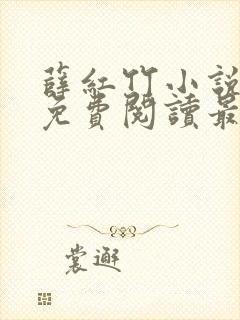 薛紅竹小說
免費閱讀最
裳邂